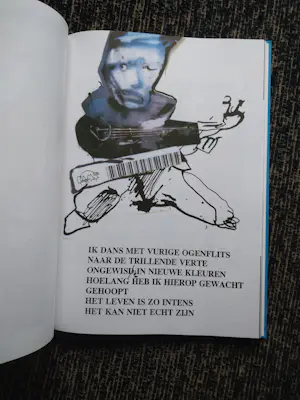 IK DANS MET VURIGE OGENFLITS
NAAR DE TRILLENDE VERTE
ONGEWIS IN NIEUWE KLEUREN
HOELANG HEB IK HIEROP GEWACHT
GEHOOPT
HET LEVEN IS ZO INTENS
HET KAN NIET ECHT ZIJN